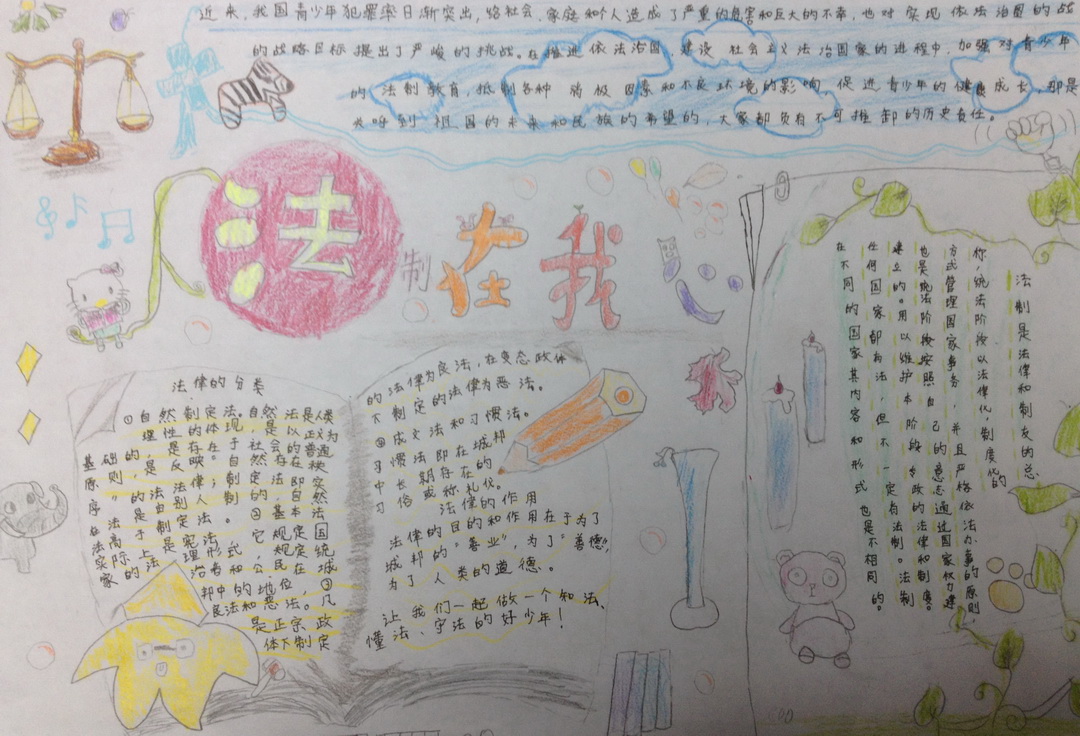 近来,我国青少年犯罪率日渐突出,给社会、家庭和个人造成了严重的危害和巨大的不幸,也对实现依法治国的战
的战略目标提出了严峻的挑战。在推进依法治国,建设社会主义法治国家的进程中,加强对青少年
的法制教育,抵制各种消极因素和不良环境的影响,促进青少年的健康成长,那是
关呼到祖国的未来和民族的希望的,大家都负有不可推卸的历史责任。
法制在我
法律的分类
①自然制定法。自然法是人类
理性的体现,是以正义为
基础的,是存在于社会的普遍
原则,是反映。自然存在秩
序的法律;制定法即实
在法是由别人制的,自然
法高于制定法。②基本法
实际上是宪法,它规定国
家的法理形式,规定统
治者和公民在城
邦中的地位,③
良法和恶法。凡
是正宗政
体下制定
的法律为良法,在变态政体
下制定的法律为恶法。
④成文法和习惯法。
习惯法即在城邦
中长期存在的
习俗或称礼仪。
法律的作用
法律的目的和作用在于为了
城邦的"善业",为了"善德",
为了人类的道德。
让我们一起做一个知法、
懂法、守法的好少年!
法制是法律和制度的总
称,统法阶按以法律化,制度化的
方式管理国家事务,并且严格依法办事的原则,
也是统法阶按按照自己的意志通过国家权力建
建立的。用以维护本阶段专政的法律和制度。
任何国家都有法,但不一定有法制。法制
在不同的国家其内容和形式也是不相同的。